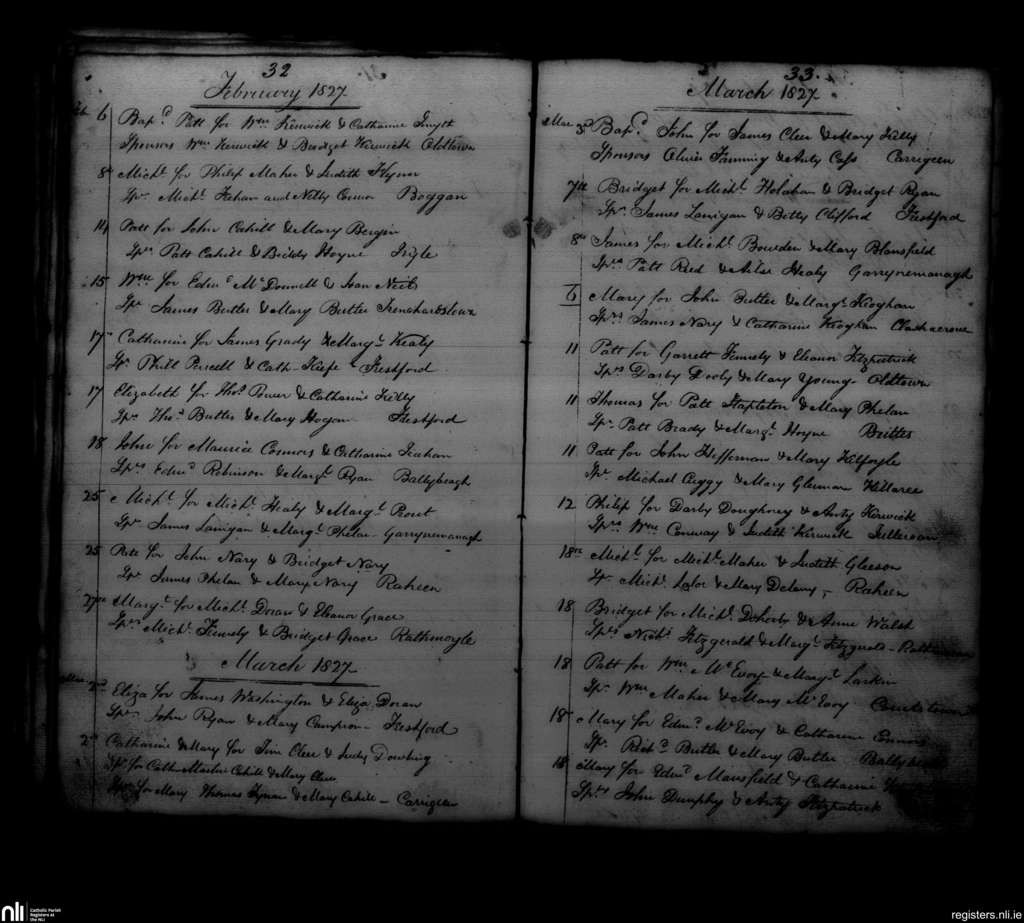 32
February 1827
Feb 6 Bapd. Patt for Wm Kerwick & Catharine Smyth
Sponsors Wm Kerwick & Bridget Kerwick Oldtown
8th Michl. for Philip Maher & Judith Hynes
Spr. Michl. Fehan and Nelly Connor Boggan
14 Patt for John Cahill & Mary Bergin
Sprs Patt Cahill & Biddy Hoyne
15 Wm for Edmd Mc Donnell & Joan Neil
Spr James Butler & Mary Butler Trenchardstown
17th Catharine for James Grady & Margt. Healy
Sp. Phill Purcell & Cath. Kiefe Freshford
17 Elizabeth for Thos. Power & Catharine Kelly
Sprs Thos. Butler & Mary Hogan Freshford
18 John for Maurice Connors & Catharine
Sprs Edmd Robinson & Margt. Ryan Ballybeagh
25 Michl. for Michl. Healy & Margt. Rout
Spr. James Lanigan & Margt. Phelan - Garrynemanagh
25 Patt for John Nary & Bridget Nary
Spr. James Phelan & Mary Nary Raheen
27th Margt. for Michl. Doran & Eleanor Grace
Sprs Michl. Fennely & Bridget Grace Rathmoyle
March 1827
Mar 2nd Eliza for James Washington & Eliza Doran
Spr. John Ryan & Mary Campion - Freshford
2nd Catharine & Mary for Tim Clear & Judy Dowling
Sp. for Cath. Martin Cahill & Mary Clear
Sprs for Mary Thomas & Mary Cahill - Carrigeen
33.
March 1827
Mar 3d Bapd. John for James Cleer & Mary Kelly
Sponsors Oliver Fanning & Anty Cass Carrigeen
7th Bridget for Michl. Holahan & Bridget Ryan
Spr. James Lanigan & Betty Clifford Freshford
8th James for Michl. Bowden & Mary Blansfield
Sprs Patt Reed & Healy Garrynemanagh
6 Mary for John Butler & Margt. Keoghan
Sprs James Nary & Catharine Keoghan Clashacrow
11 Patt for Garrett Fennely & Eleanor Fitzpatrick
Sprs Darby Dooly & Mary Young - Oldtown
11 Thomas for Patt Stapleton & Mary Phelan
Spr. Patt Brady & Margt. Hoyne
11 Patt for John Heffernan & Mary Kilfoyle
Spr. Michael & Mary Glennan Killaree
12 Philip for Darby Doughney & Anty Kerwick
Sprs Wm Conway & Judith Kerwick Tulleroan
18th Michl. for Michl. Maher & Judith Gleeson
Sp. Michl. Lalor & Mary Delany - Raheen
18 Bridget for Michl. Doherty & Anne Walsh
Sprs Nichs. Fitzgerald & Margt. Fitzgerald -
18 Patt for Wm. Mc Evoy & Margt. Larkin
Spr. Wm Maher & Mary Mc Evoy
18th Mary for Edmd. Mc Evoy & Catharine Connors
Spr. Richd. Butler & Mary Butler
18 Mary for Edmd Mansfield & Catharine
Sprs John Dunphy & Anty Fitzpatrick
nli
Catholic Parish
Registers at
the NLI
registers.nli.ie